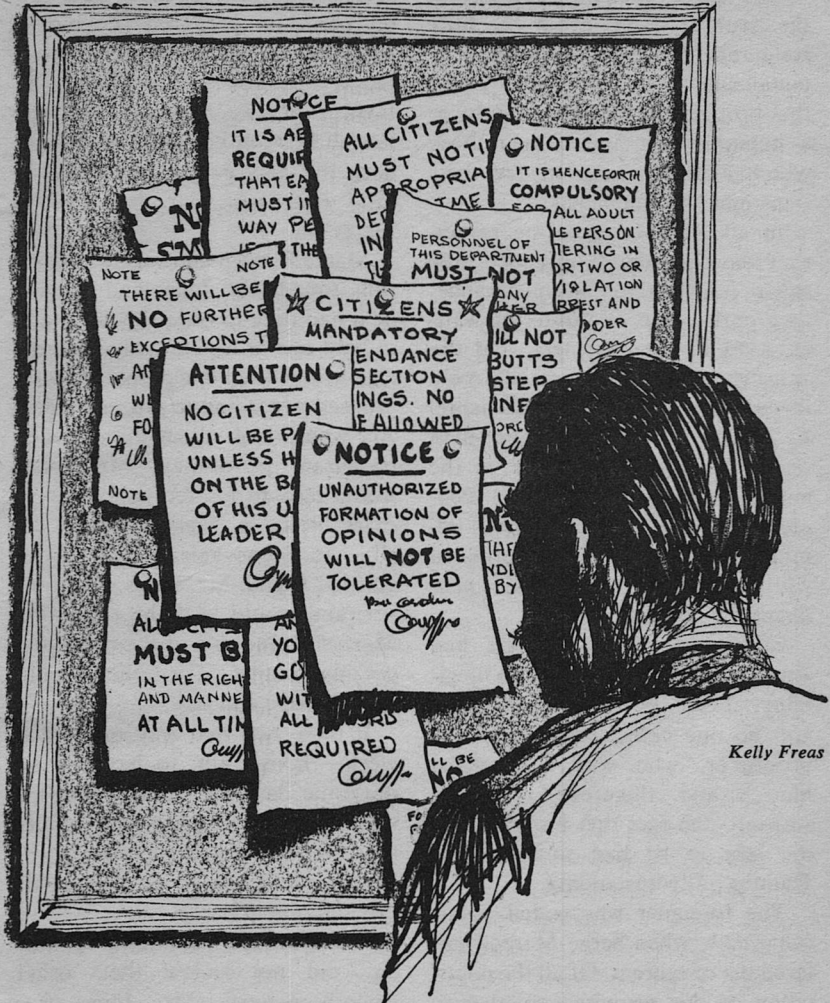 NOTICE
IT IS
REQUIR
THAT EA
MUST
WAY PE
THE
ALL CITIZENS
MUST NOTI
APPROPRIA
IN
NOTICE
IT IS HENCEFORTH
COMPULSORY
FOR ALL ADULT
LE PERSON
TERING IN
OR TWO OR
VIOLATION
RREST AND
DER
PERSONNEL OF
THIS DEPARTMENT
MUST NOT
ANY
NOTE NOTE
THERE WILL BE
NO FURTHER
EXCEPTIONS T
NOTE
☆ CITIZENS ☆
MANDATORY
ENDANCE
SECTION
INGS. NO
E ALLOWED
ILL NOT
BUTTS
STEP
INE
ATTENTION
NO CITIZEN
WILL BE P
UNLESS H
ON THE BA
OF HIS U
LEADER
NOTICE
UNAUTHORIZED
FORMATION OF
OPINIONS
WILL NOT BE
TOLERATED
BY
MUST B
IN THE RIGH
AND MANNE
AT ALL TIM
YO
GO
WIT
ALL
REQUIRED
LL BE
NO
Kelly Freas